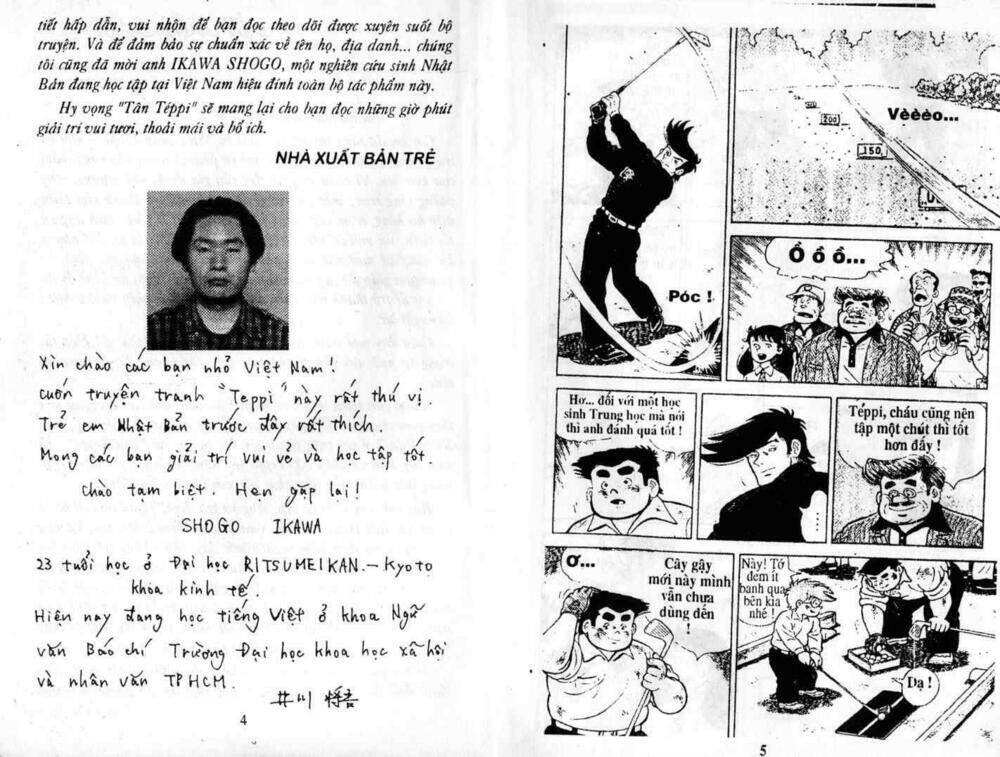 tiết hấp dẫn, vui nhộn để bạn đọc theo dõi được xuyên suốt bộ
truyện. Và để đảm bảo sự chuẩn xác về tên họ, địa danh... chúng
tôi cũng đã mời anh IKAWA SHOGO, một nghiên cứu sinh Nhật
Bản đang học tập tại Việt Nam hiệu đính toàn bộ tác phẩm này.
Hy vọng "Tân Téppi" sẽ mang lại cho bạn đọc những giờ phút
giải trí vui tươi, thoải mái và bổ ích.
NHÀ XUẤT BẢN TRẺ
Xin chào các bạn nhỏ Việt Nam!
cuốn truyện tranh "Teppi" này rất thú vị.
Trẻ em Nhật Bản trước đây rất thích.
Mong các bạn giải trí vui vẻ và học tập tốt.
chào tạm biệt. Hẹn gặp lại!
SHOGO IKAWA
23 tuổi học ở Đại học RITSUMEIKAN. – Kyoto
khoa kinh tế
Hiện nay đang học tiếng Việt ở khoa Ngữ
văn Báo chí Trường Đại học khoa học xã hội
và nhân văn TPHCM.
井川 将吾
4
Póc !
Vèèèo...
200
150
Ồ ồ ồ...
Hơ... đối với một học
sinh Trung học mà nói
thì anh đánh quá tốt !
...
Téppi, cháu cũng nên
tập một chút thì tốt
hơn đấy !
Ơ...
Cây gậy
mới này mình
vẫn chưa
dùng đến
!
Này! Tớ
đem ít
banh qua
bên kia
nhé !
Dạ !
5